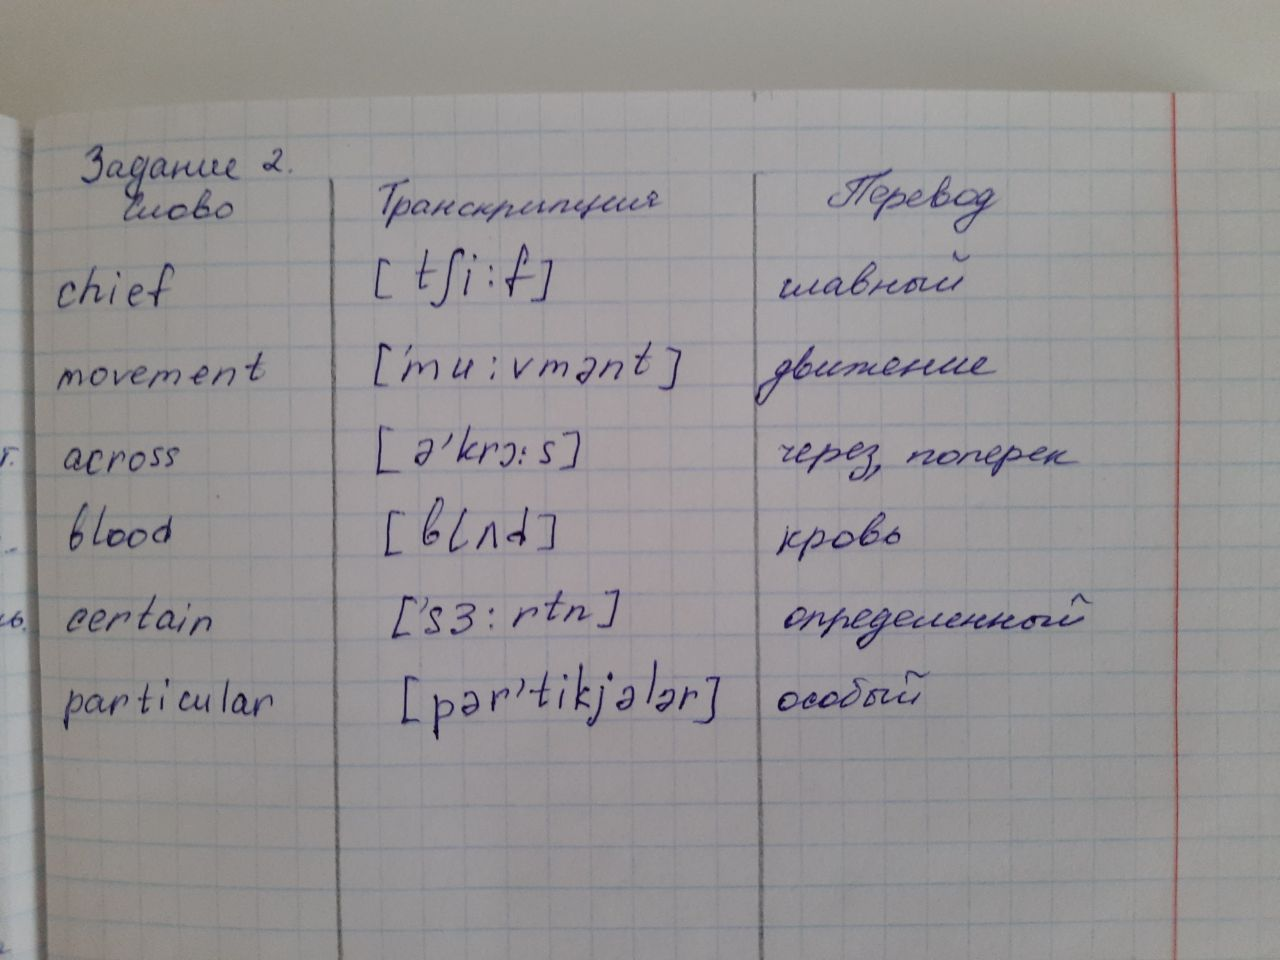 Задание 2.
Слово Транскрипция Перевод
chief [tʃi:f] главный
movement ['mu:vmənt] движение
across [ə'krɔ:s] через, поперек
blood [blʌd] кровь
certain ['sɜ:rtn] определенный
particular [pər'tikjələr] особый